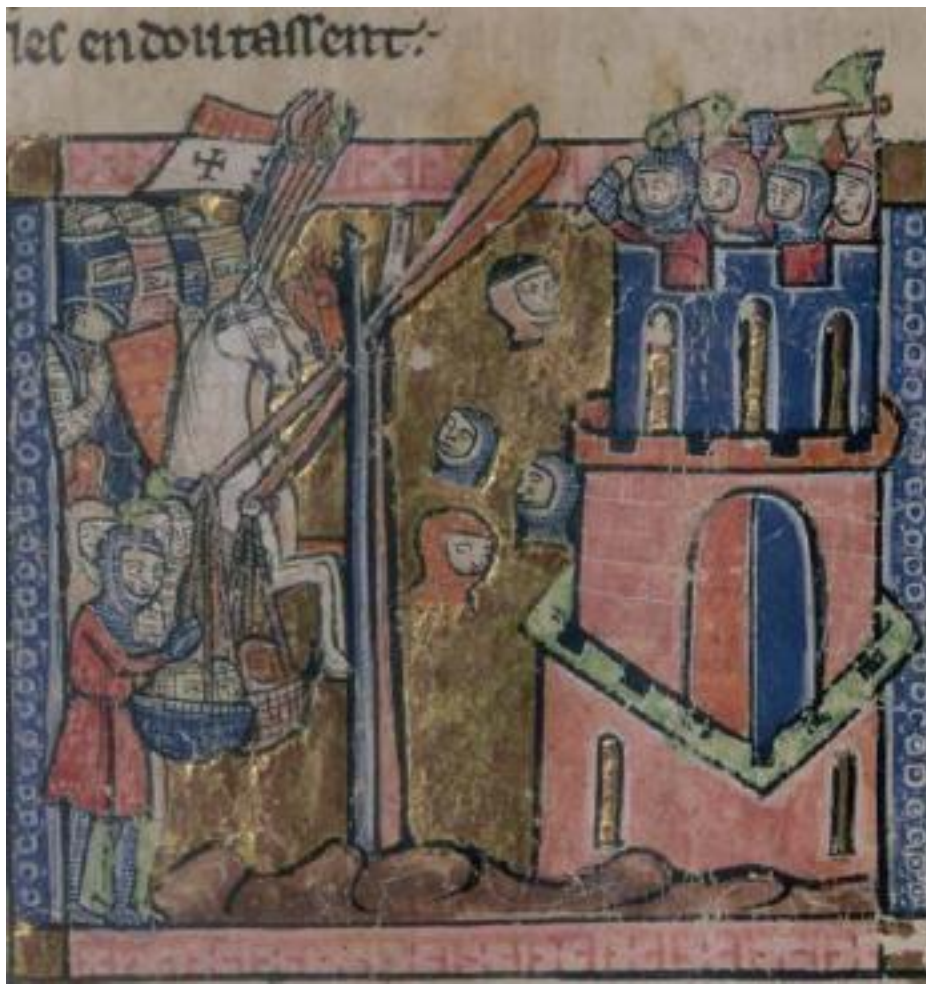 les endoutassent:-